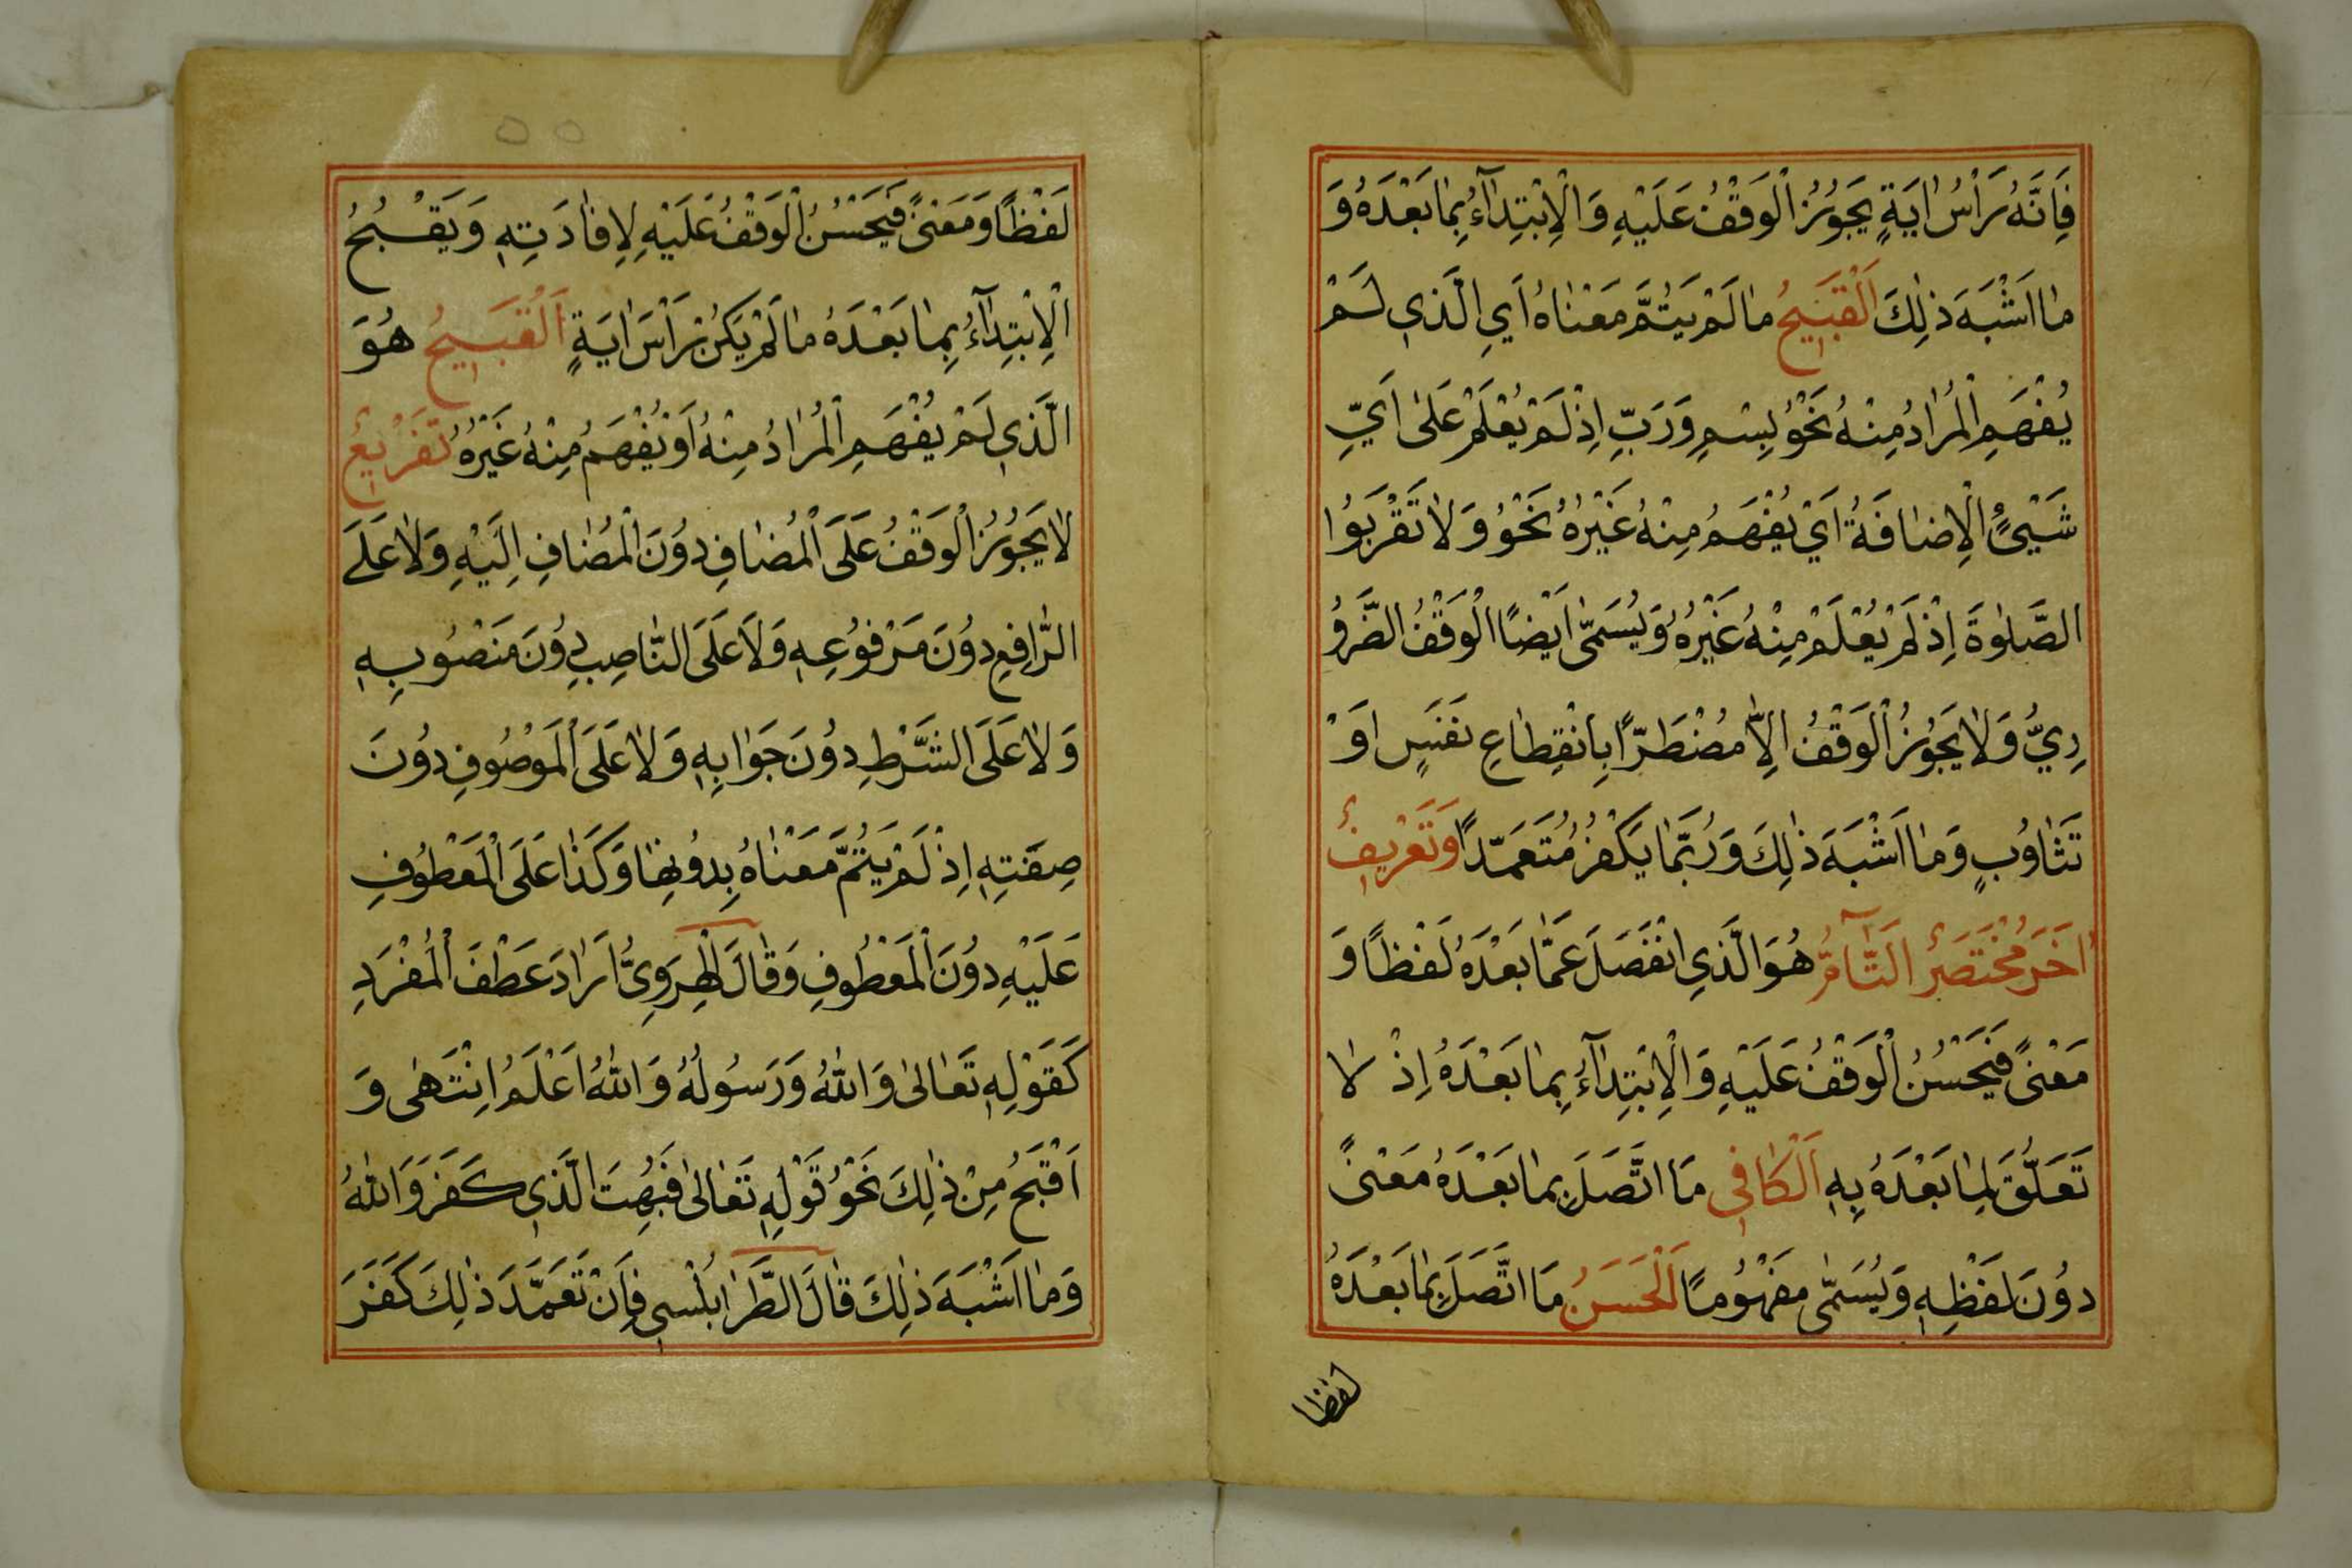 فَاِنَّهُ رَأْسُ اٰيَةٍ يَجُوزُ الْوَقْفُ عَلَيْهِ وَالْاِبْتِدَآءُ بِمٰا بَعْدَهُ وَ
مٰا اَشْبَهَ ذٰلِكَ اَلْقَبِيحُ مٰا لَمْ يَتُمَّ مَعْنٰاهُ اَيِ الَّذِي لَمْ
يُفْهَمِ الْمُرٰادُ مِنْهُ نَحْوُ بِسْمِ وَرَبِّ اِذْ لَمْ يُعْلَمْ عَلىٰ اَيِّ
شَيْئٍ الْاِضٰافَةُ اَيْ يُفْهَمُ مِنْهُ غَيْرُهُ نَحْوُ وَلٰا تَقْرَبُوا
الصَّلوٰةَ اِذْ لَمْ يُعْلَمْ مِنْهُ غَيْرُهُ وَيُسَمّٰى اَيْضًا الْوَقْفُ الضَّرُو
رِيُّ وَلٰا يَجُوزُ الْوَقْفُ اِلّٰا مُضْطَرًّا بِانْقِطٰاعِ نَفَسٍ اَوْ
تَثٰاوُبٍ وَمٰا اَشْبَهَ ذٰلِكَ وَرُبَّمٰا يَكْفُرُ مُتَعَمِّدًا وَتَعْرِيفٌ
اٰخَرُ مُخْتَصَرٌ اَلتَّآمُّ هُوَ الَّذِي انْفَصَلَ عَمّٰا بَعْدَهُ لَفْظًا وَ
مَعْنًى فَيَحْسُنُ الْوَقْفُ عَلَيْهِ وَالْاِبْتِدَآءُ بِمٰا بَعْدَهُ اِذْ لٰا
تَعَلُّقَ لِمٰا بَعْدَهُ بِهِ اَلْكٰافِي مَا اتَّصَلَ بِمٰا بَعْدَهُ مَعْنًى
دُونَ لَفْظِهِ وَيُسَمّٰى مَفْهُومًا اَلْحَسَنُ مَا اتَّصَلَ بِمٰا بَعْدَهُ
لفظا
لَفْظًا وَمَعْنًى فَيَحْسُنُ الْوَقْفُ عَلَيْهِ لِاِفٰادَتِهِ وَيَقْبُحُ
الْاِبْتِدَآءُ بِمٰا بَعْدَهُ مٰا لَمْ يَكُنْ رَأْسَ اٰيَةٍ اَلْقَبِيحُ هُوَ
الَّذِي لَمْ يُفْهَمِ الْمُرٰادُ مِنْهُ اَوْ يُفْهَمُ مِنْهُ غَيْرُهُ تَفْرِيعٌ
لٰا يَجُوزُ الْوَقْفُ عَلَى الْمُضٰافِ دُونَ الْمُضٰافِ اِلَيْهِ وَلٰا عَلَى
الرّٰافِعِ دُونَ مَرْفُوعِهِ وَلَا عَلَى النّٰاصِبِ دُونَ مَنْصُوبِهِ
وَلٰا عَلَى الشَّرْطِ دُونَ جَوٰابِهِ وَلٰا عَلَى الْمَوْصُوفِ دُونَ
صِفَتِهِ اِذْ لَمْ يَتُمَّ مَعْنٰاهُ بِدُونِهٰا وَكَذٰا عَلَى الْمَعْطُوفِ
عَلَيْهِ دُونَ الْمَعْطُوفِ وَقٰالَ الْهِرَوِيُّ اَرٰادَ عَطْفَ الْمُفْرَدِ
كَقَوْلِهِ تَعٰالىٰ وَاللّٰهُ وَرَسُولُهُ وَاللّٰهُ اَعْلَمُ انْتَهٰى وَ
اَقْبَحُ مِنْ ذٰلِكَ نَحْوُ قَوْلِهِ تَعٰالىٰ فَبُهِتَ الَّذِي كَفَرَ وَاللّٰهُ
وَمٰا اَشْبَهَ ذٰلِكَ قٰالَ الطَّرٰابُلْسِي فَاِنْ تَعَمَّدَ ذٰلِكَ كَفَرَ